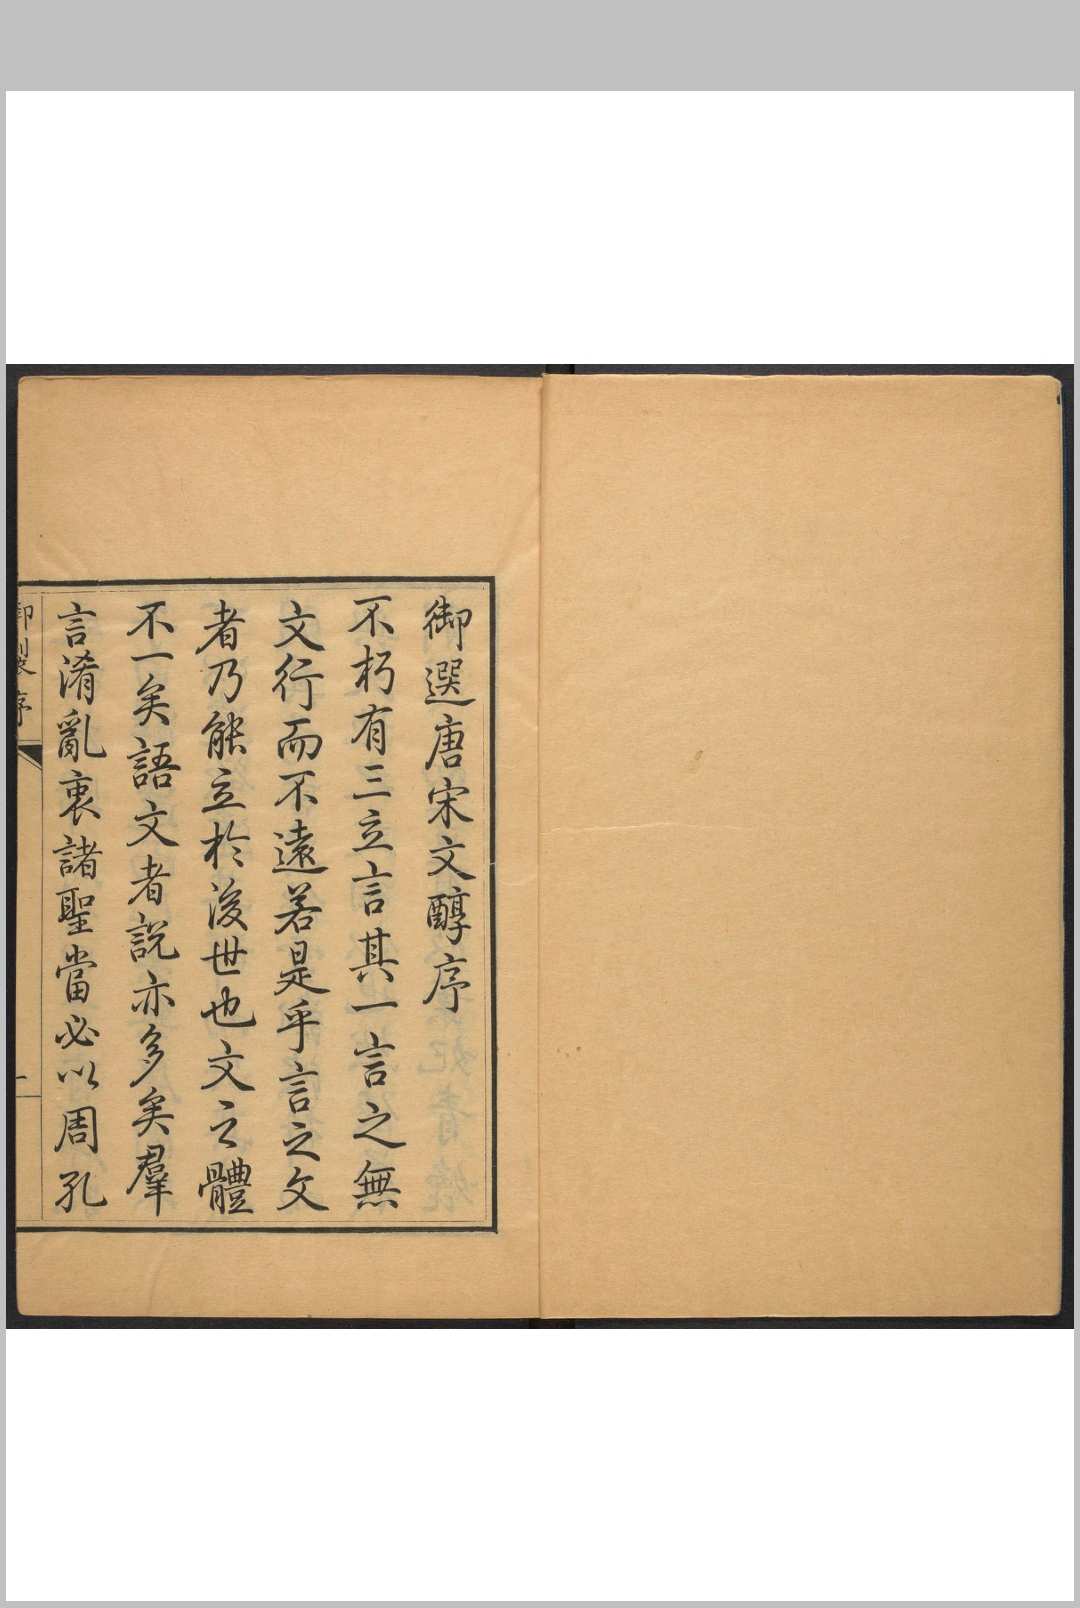 御選唐宋文醇序
不朽有三立言其一言之無
文行而不遠若是乎言之文
者乃能立於後世也文之體
不一矣語文者說亦多矣羣
言淆亂衷諸聖當必以周孔
御製序
一